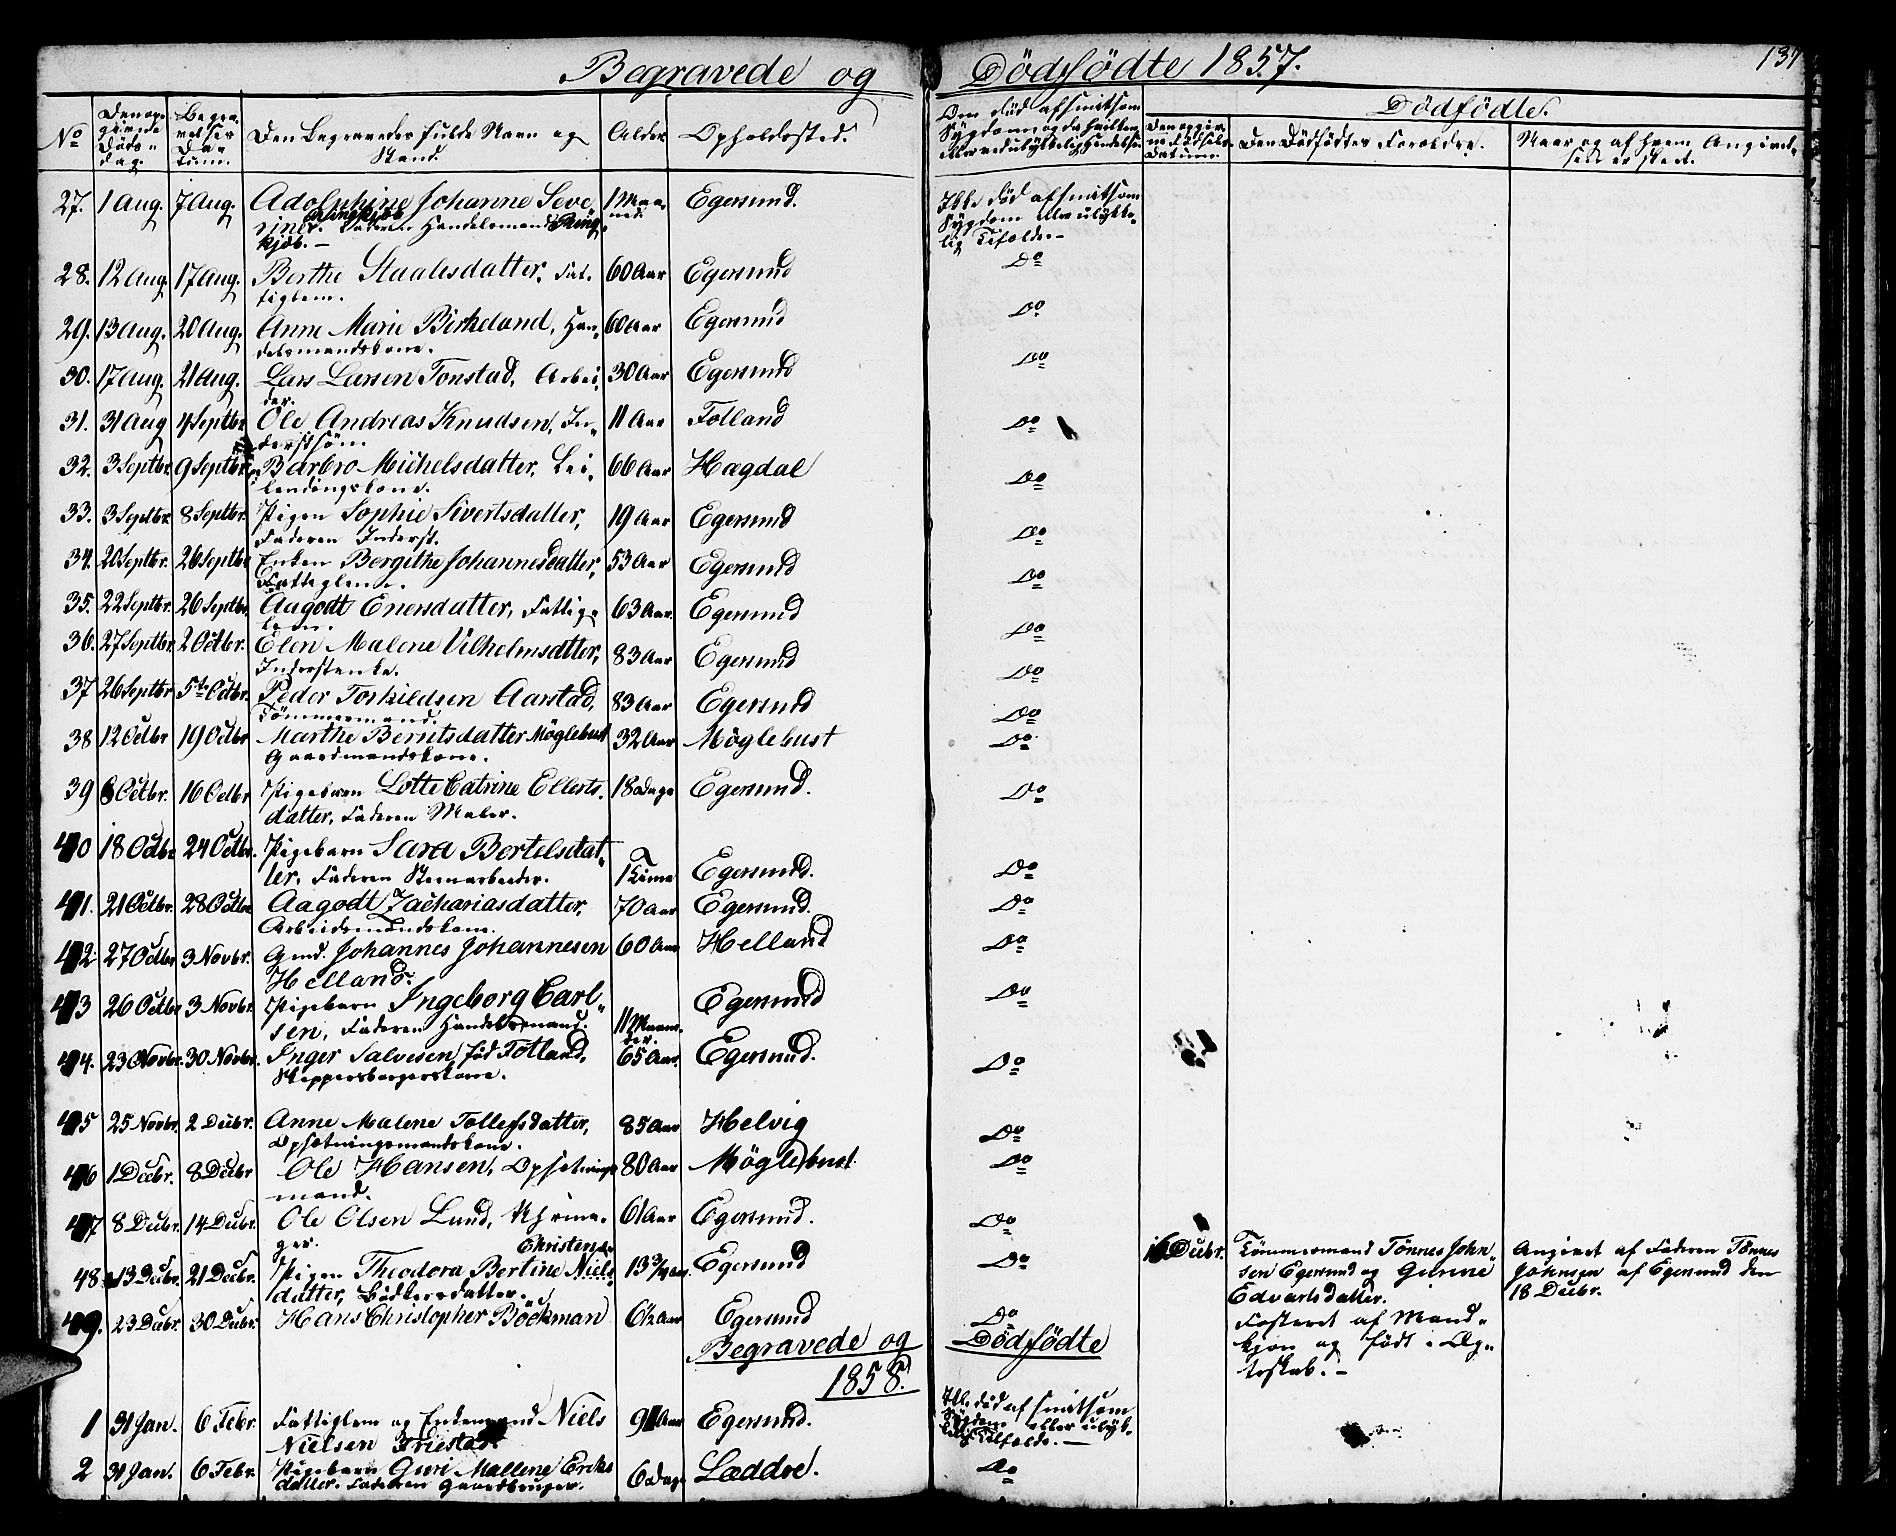 Begravede og Dødfødte 1857.
137
No
Den opgivne Dødsdag.
Begravelses Datum.
Den Begravedes fulde Navn og Stand
Alder
Opholdssted.
Om død af smitsom Sygdom, og da hvilken, eller ved ulykkelig Hændelse
Dødfødte.
Den opgivne Fødsels Datum.
Den Dødfødtes Forældre.
Naar og af hvem Angivelsen er skeet.
27. 1 Aug. 7 Aug. Adolphine Johanne Seve 1 Maaned. Egersund. Ikke død af smitsom
rine. Faderen Handelsmand Ring Sygdom eller ulykke-
kjøb. - lig Tilfælde. -
28. 12 Aug. 17 Aug. Berthe Staalesdatter, Fat- 60 Aar Egersund Do
tiglem.
29. 13 Aug. 20 Aug. Anne Marie Birkeland, Han- 60 Aar Egersund Do
delsmandskone.
30. 17 Aug. 21 Aug. Lars Larsen Tonstad, Arbei- 30 Aar Egersund Do
der.
31. 31 Aug 4 Septbr Ole Andreas Knudsen, In- 11 Aar Folland Do
derstsøn
32. 3 Septbr 9 Septbr. Barbro Michelsdatter, Lei- 66 Aar Hægdal Do
lendingskone.
33. 3 Septbr. 8 Septbr. Pigen Sophie Sivertsdatter, 19 Aar Egersund Do
Faderen Inderst.
34. 20 Septbr. 26 Septbr Enken Bergithe Johannesdatter, 53 Aar Egersund Do
Fattiglem.
35. 22 Septbr. 26 Septbr. Aagodt Enersdatter, Fattig- 63 Aar. Egersund Do
lem.
36. 27 Septbr. 2 Octbr. Elen Malene Vilhelmsdatter, 83 Aar Egersund Do
Inderstenke.
37 26 Septbr 5te Octbr. Peder Torkildsen Aarstad, 83 Aar Egersund Do
Tømmermand.
38 12 Octbr 19 Octbr Marthe Berntsdatter Møglebust 32 Aar Møglebust Do
Gaardmandskone.
39 6 Octbr. 16 Octbr Pigebarn Lotte Catrine Ellerts- 18 Dage Egersund. Do
datter, Faderen Maler.
40 18 Octbr 24 Octbr. Pigebarn Sara Bertelsdat-
ter, Faderen Steenarbeider. 1 Time Egersund. Do
41. 21 Octbr. 28 Octbr Aagodt Zachariasdatter, 70 Aar Egersund. Do
Arbeidsmandskone.
42. 27 Octbr 3 Novbr. Gmd. Johannes Johannesen 60 Aar Helland Do
Helland.
43 26 Octbr 3 Novbr. Pigebarn Ingeborg Carl- Egersund Do
sen, Faderen Handelsmand. 11 Maaneder.
44. 23 Novbr. 30 Novbr. Inger Salvesen, fød Totland, 65 Aar. Egersund. Do
Skippersborgerskone.
45 25 Novbr. 2 Decbr. Anne Malene Tollefsdatter, 85 Aar Helvig Do
Opsætningsmandskone.
46 1 Decbr. 8 Decbr Ole Hansen, Opsætnings 80 Aar Møglebust. Do
mand.
47 8 Decbr. 14 Decbr. Ole Olsen Lund, Uhrma- 61 Aar Egersund. Do
ger.
Christense
48. 13 Decbr. 21 Decbr. Pigen Theodora Bertine Niels- 13 3/4 Aar Egersund Do
datter, Bødkersdatter.
49. 23 Decbr. 30 Decbr. Hans Christopher Böckman 6 1/2 Aar Egersund Do
16 Decbr. Tømmermand Tönnes John-
sen Egersund og Gurine
Edvartsdatter.
Fosteret af Mand-
kjøn og født i Æg-
teskab. -
Angivet af Faderen Tönnes
Johnsen af Egersund den
18 Decbr.
Begravede og Dødfødte
1858.
1 31 Jan. 6 Febr. Fattiglem og Enkemand Niels 91 Aar Egersund. Ikke død af smitsom
Nielsen Friestad. Sygdom eller ulyk-
kelig Tilfælde. -
2 31 Jan. 6 Febr. Pigebarn Guri Mallene Eriks 6 Dage Læddre. Do
datter. Faderen Gaardbruger.